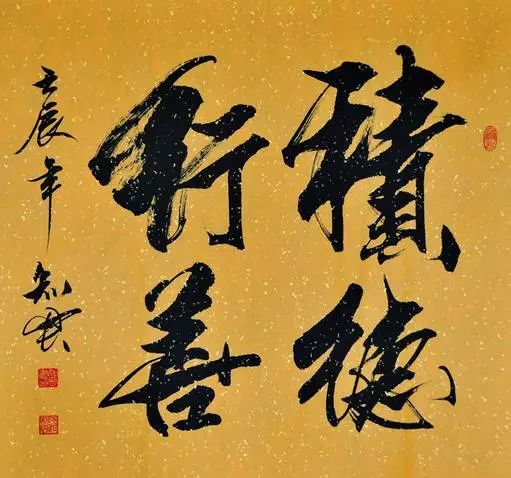 積德
行善
壬辰年
知賢